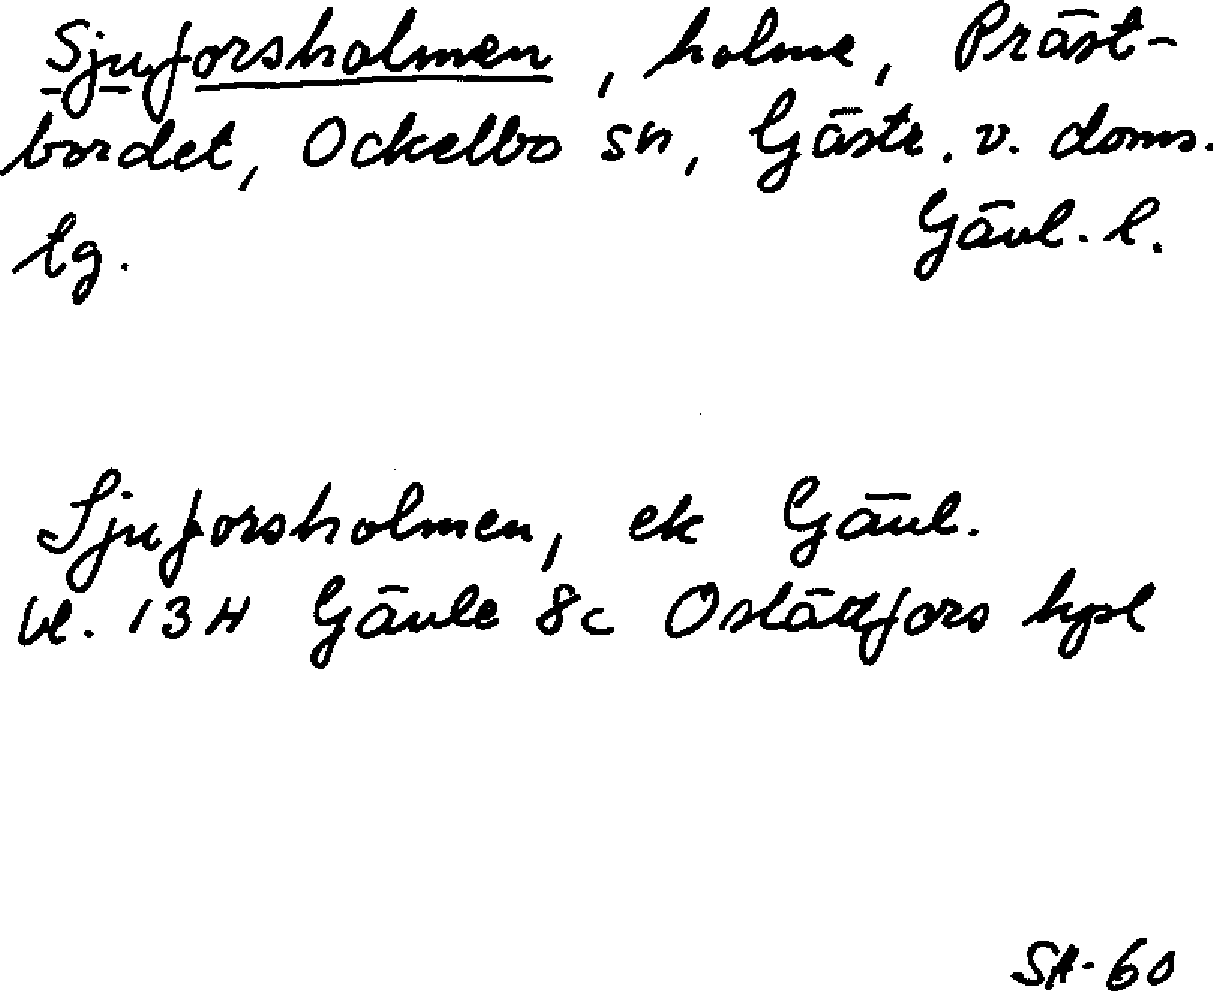 Sjuforsholmen, holme, Präst-
bordet, Ockelbo sn, Gästr. v. doms.
tg. Gävl. l.
Sjuforsholmen, ek Gävl.
bl. 13H Gävle 8c Oslättfors kpl
SA-60